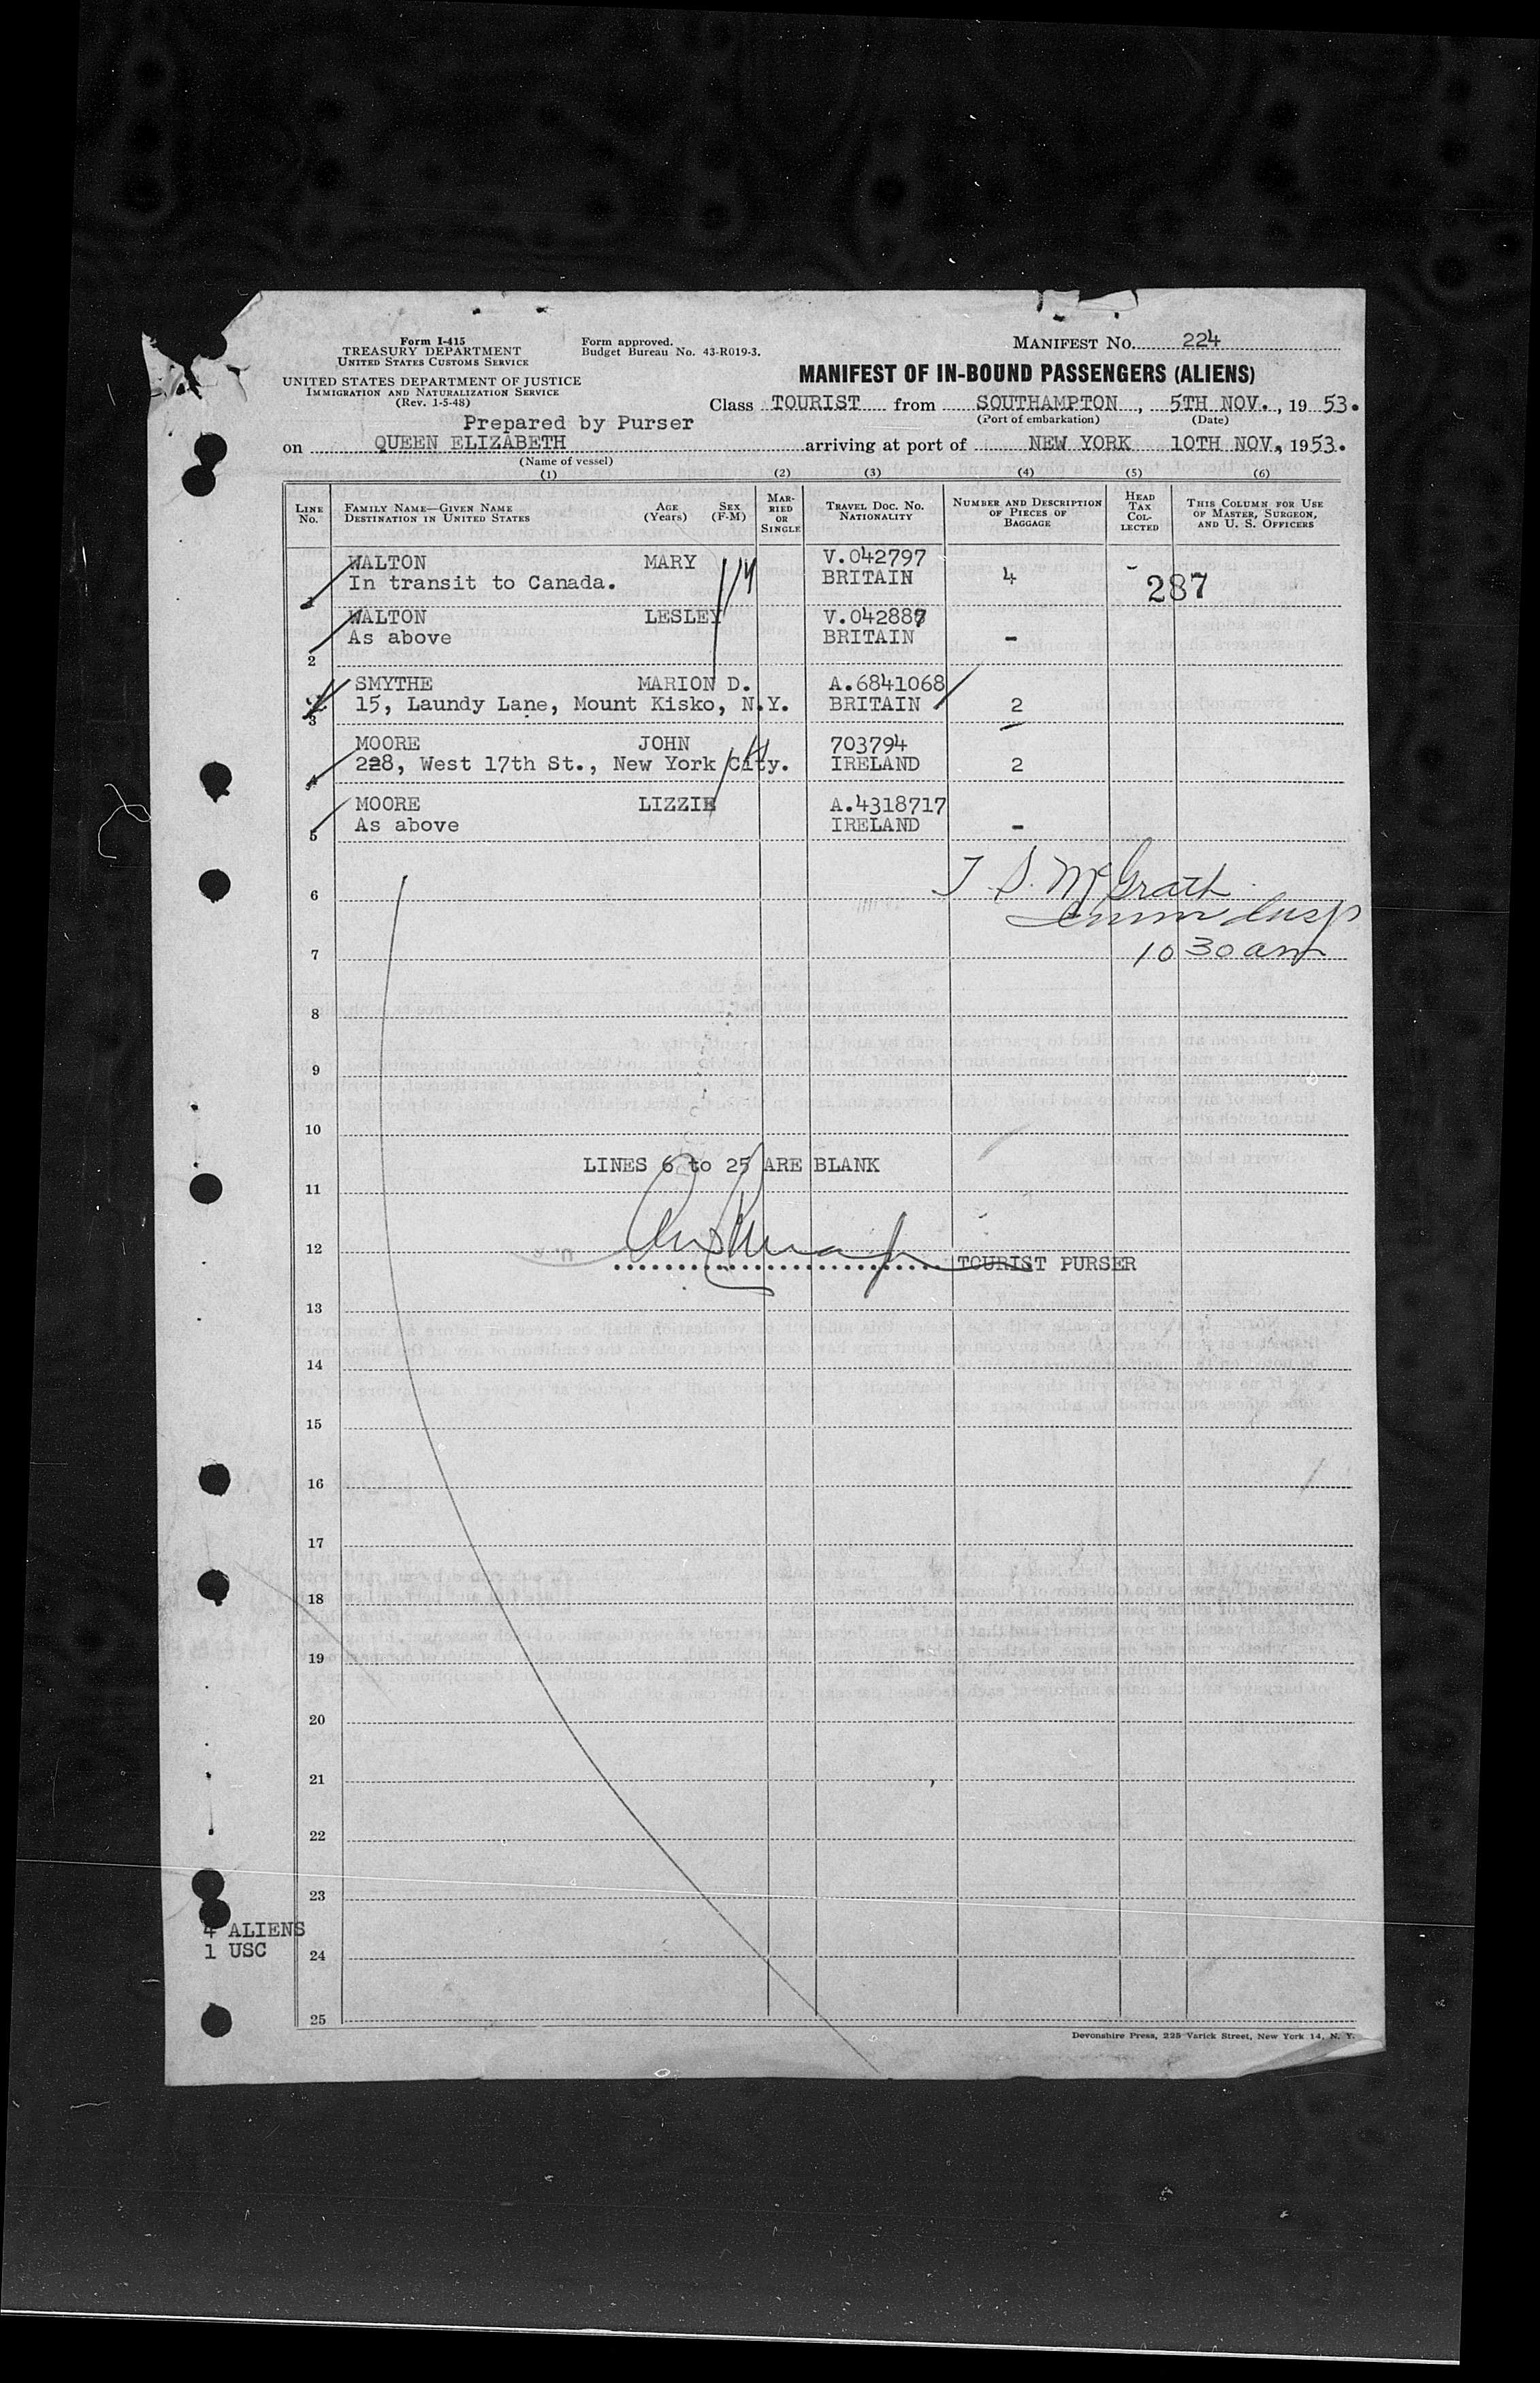 Form I-415
TREASURY DEPARTMENT
UNITED STATES CUSTOMS SERVICE
UNITED STATES DEPARTMENT OF JUSTICE
IMMIGRATION AND NATURALIZATION SERVICE
(Rev. 1-5-48)
Form approved.
Budget Bureau No. 43-R019-3.
MANIFEST No. 224
MANIFEST OF IN-BOUND PASSENGERS (ALIENS)
Class TOURIST from SOUTHAMPTON, 5TH NOV., 1953.
(Port of embarkation) (Date)
Prepared by Purser
on QUEEN ELIZABETH arriving at port of NEW YORK 10TH NOV, 1953.
(Name of vessel)
(1) (2) (3) (4) (5) (6)
LINE No. FAMILY NAME—GIVEN NAME DESTINATION IN UNITED STATES AGE (Years) SEX (F-M) MARRIED OR SINGLE TRAVEL DOC. NO. NATIONALITY NUMBER AND DESCRIPTION OF PIECES OF BAGGAGE HEAD TAX COLLECTED THIS COLUMN FOR USE OF MASTER, SURGEON, AND U. S. OFFICERS
WALTON MARY V.042797
1 In transit to Canada. BRITAIN 4 - 287
WALTON LESLEY V.042887
2 As above BRITAIN -
SMYTHE MARION D. A.6841068
3 15, Laundy Lane, Mount Kisko, N.Y. BRITAIN 2
MOORE JOHN 703794
4 228, West 17th St., New York City. IRELAND 2
MOORE LIZZIE A.4318717
5 As above IRELAND -
T. S. McGrath
6
Imm Insp
7 10 30 am
8
9
10
LINES 6 to 25 ARE BLANK
11
12
TOURIST PURSER
13
14
15
16
17
18
19
20
21
22
23
4 ALIENS
1 USC
24
25
Devonshire Press, 225 Varick Street, New York 14, N. Y.